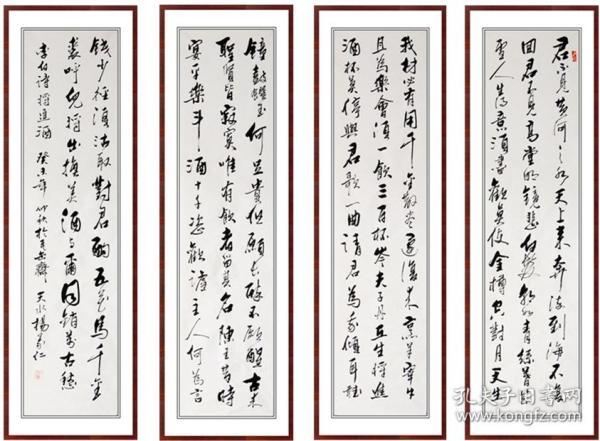 君不見黄河之水天上来奔流到海不復
回君不見高堂明鏡悲白髮朝如青絲暮成
雪人生得意須盡歡莫使金樽空對月天生
我材必有用千金散尽還復来烹羊宰牛
且為樂會須一飲三百杯岑夫子丹丘生將進
酒杯莫停與君歌一曲請君為我傾耳聽
鐘鼓饌玉何足貴但願長醉不願醒古来
聖賢皆寂寞唯有飲者留其名陳王昔時
宴平樂斗酒十千恣歡謔主人何為言
錢少徑須沽取對君酌五花馬千金
裘呼兒將出換美酒與爾同銷萬古愁
李白詩將進酒 癸未年仲秋於 齋 天水楊 仁
孔夫子旧书网
kongfz.com